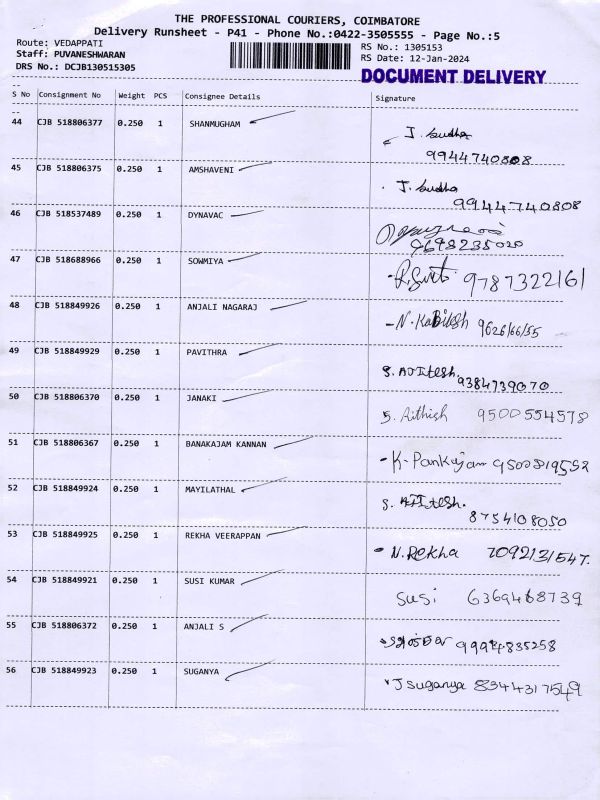 THE PROFESSIONAL COURIERS, COIMBATORE
Delivery Runsheet - P41 - Phone No.:0422-3505555 - Page No.:5
Route: VEDAPPATI
Staff: PUVANESHWARAN
DRS No.: DCJB130515305
RS No.: 1305153
RS Date: 12-Jan-2024
DOCUMENT DELIVERY
S No Consignment No Weight PCS Consignee Details Signature
44 CJB 518806377 0.250 1 SHANMUGHAM J. Sudha
9944740808
45 CJB 518806375 0.250 1 AMSHAVENI J. Sudha
9944740808
46 CJB 518537489 0.250 1 DYNAVAC
9698235020
47 CJB 518688966 0.250 1 SOWMIYA 9787322161
48 CJB 518849926 0.250 1 ANJALI NAGARAJ N. Kabilesh 9626166155
49 CJB 518849929 0.250 1 PAVITHRA
9384739070
50 CJB 518806370 0.250 1 JANAKI S. Aithish 9500554578
51 CJB 518806367 0.250 1 BANAKAJAM KANNAN K. Pankajam
52 CJB 518849924 0.250 1 MAYILATHAL
8754108050
53 CJB 518849925 0.250 1 REKHA VEERAPPAN N. Rekha 7092131547.
54 CJB 518849921 0.250 1 SUSI KUMAR Susi 6369468739
55 CJB 518806372 0.250 1 ANJALI S 9994835258
56 CJB 518849923 0.250 1 SUGANYA J suganya 8344317549